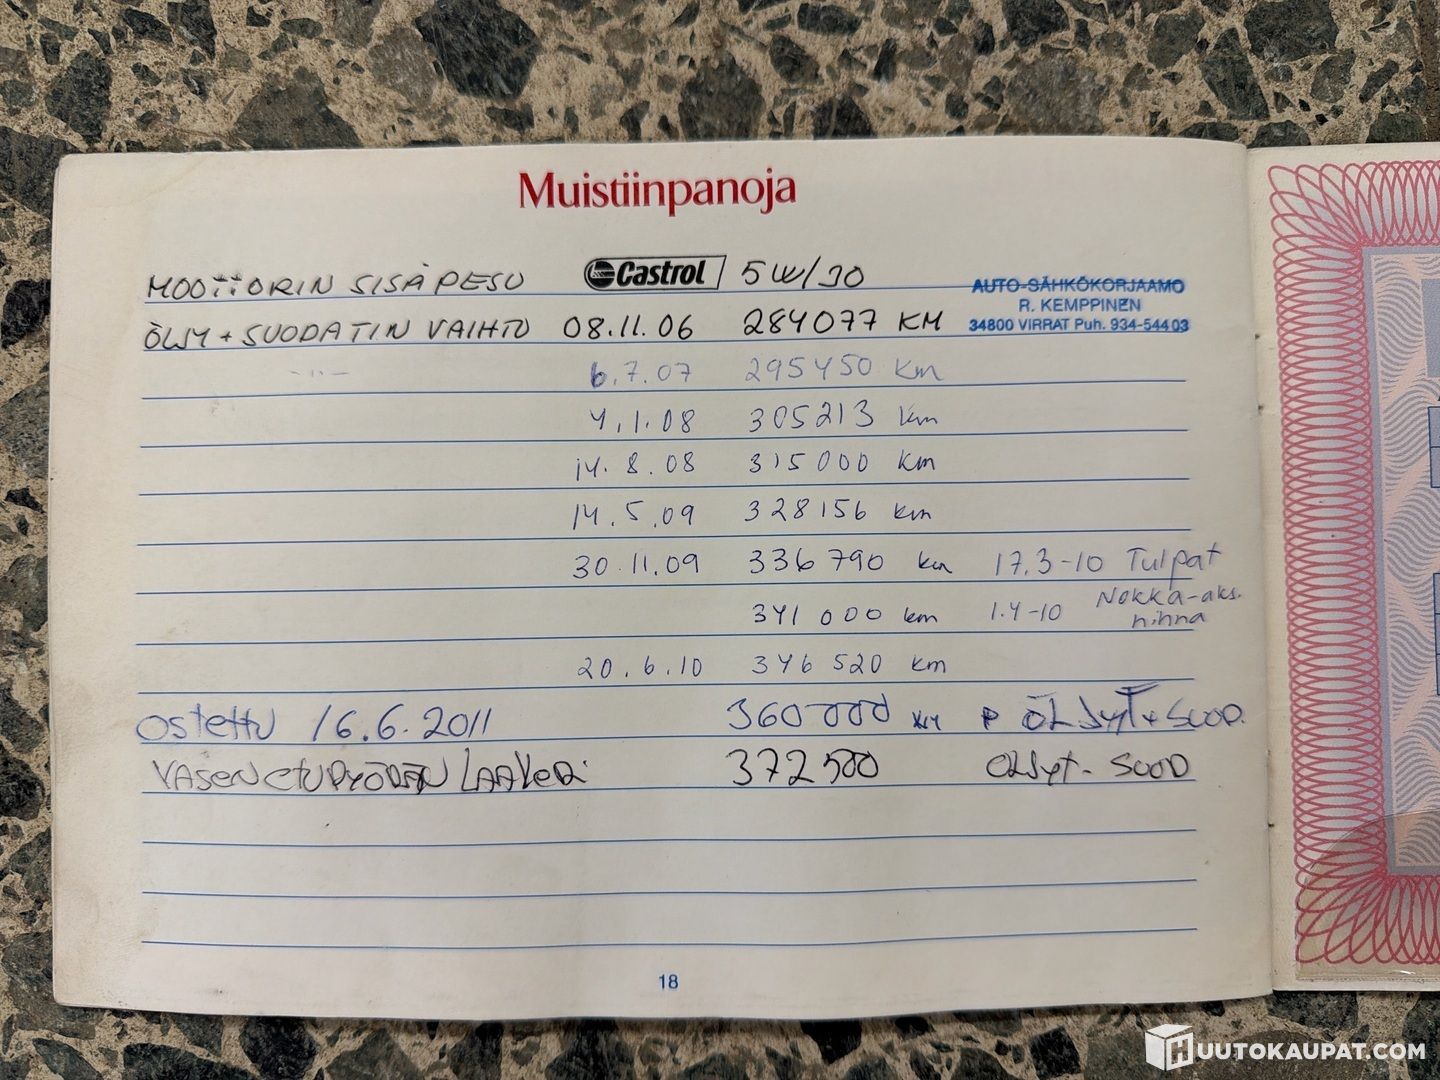 Muistiinpanoja
MOOTTORIN SISÄPESU Castrol 5W/30 AUTO-SÄHKÖKORJAAMO
R. KEMPPINEN
ÖLJY + SUODATIN VAIHTO 08.11.06 284077 KM 34800 VIRRAT Puh. 934-54403
-"- 6.7.07 295450 km
4.1.08 305213 km
14.8.08 315000 km
14.5.09 328156 km
30.11.09 336790 km 17.3-10 Tulpat
341000 km 1.4-10 Nokka-aks.
hihna
20.6.10 346520 km
Ostettu 16.6.2011 360000 km ÖLJYT + SUOD.
VASEN ETUPYÖRÄN LAAKERI 372500 ÖLJYT - SUOD
18
HUUTOKAUPAT.COM